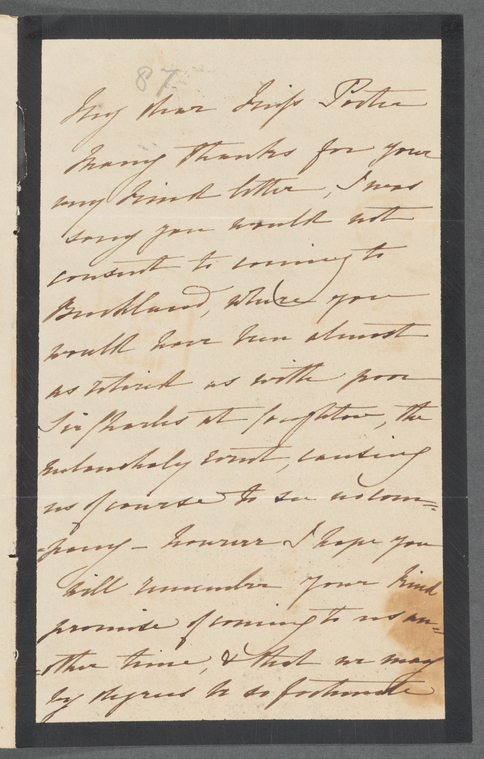 87
My dear Miss Porter
Many thanks for your
very kind letter, I was
sorry you would not
consent to coming to
Buckland, where you
would have been almost
as retired as with poor
Sir Charles at the
melancholy event, causing
us of course to see no com=
=pany – however I hope you
will remember your kind
promise of coming to us an=
=other time, & that we may
by degrees be so fortunate